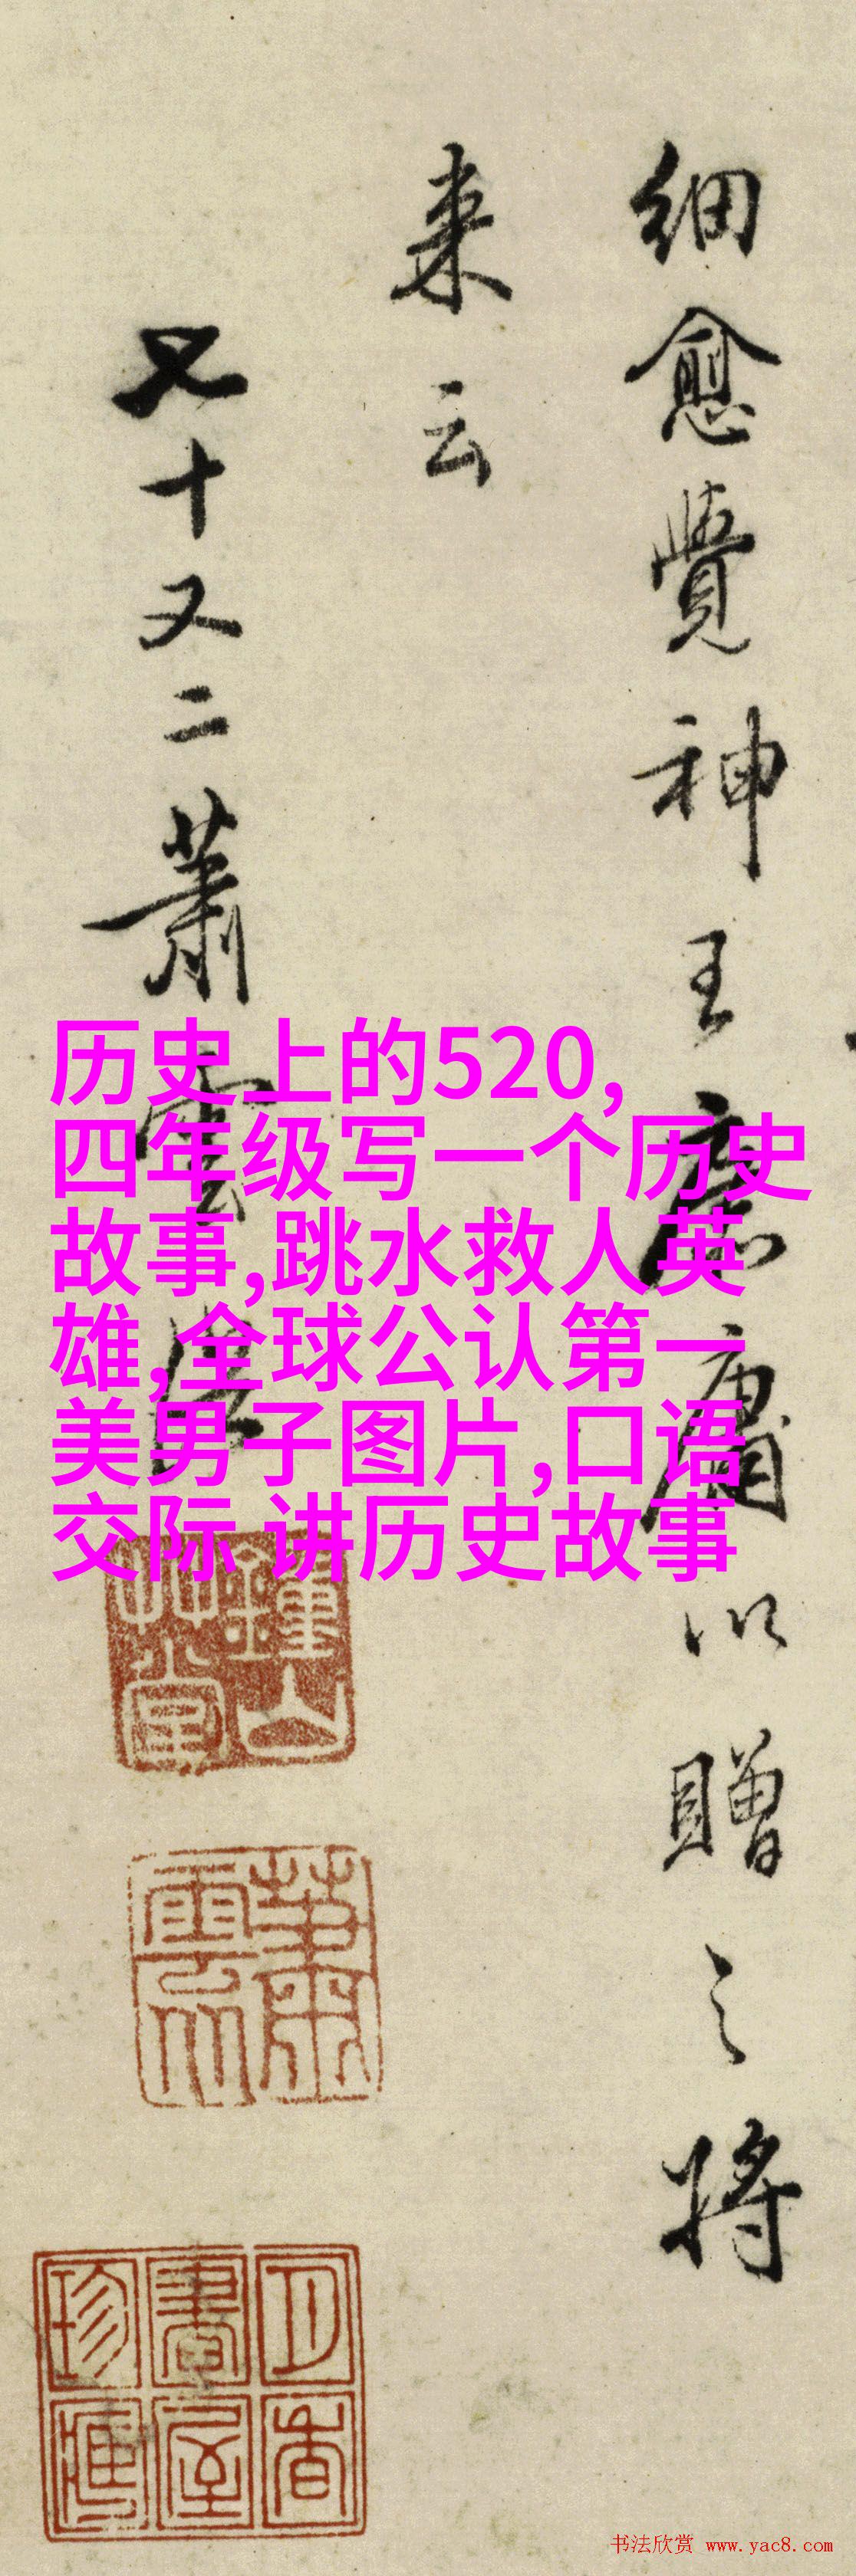 细愈觉神王应庸以赠之将
来云
七十又二萧云从
历史上的520,
四年级写一个历史
故事,跳水救人英
雄,全球公认第一
美男子图片,口语
交际 讲历史故事
钟山草堂
萧云从
书法欣赏 www.yac8.com